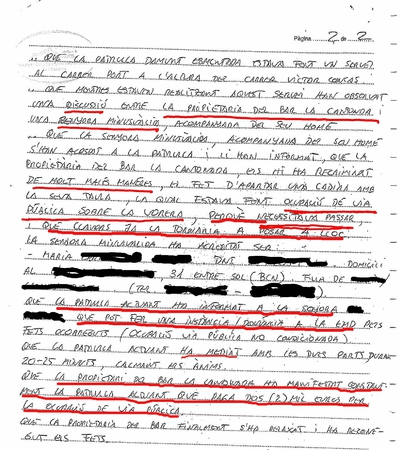 Pàgina 2 de 2
.. QUE LA PATRULLA DAMUNT ESMENTADA ESTAVA FENT UN SERVEI
AL CARRER PONT A L'ALTURA DEL CARRER VICTOR
.. QUE MENTRES ESTAVEN REALITZENT AQUEST SERVEI HAN OBSERVAT
UNA DISCUSIÓ ENTRE LA PROPIETARIA DEL BAR LA CANTONADA I
UNA SENYORA MINUSVALIDA, ACOMPANYADA DEL SEU HOME.
.. QUE LA SENYORA MINUSVALIDA, ACOMPANYADA DEL SEU HOME
S'HAN ACOSAT A LA PATRULLA I LI HAN INFORMAT, QUE LA
PROPIETARIA DEL BAR LA CANTONADA, ELS HI HA RECRIMINAT
DE MOLT MALES MANERES, EL FET D'APARTAR UNA CADIRA AMB
LA SEVA TAULA, LA QUAL ESTAVA FENT OCUPACIÓ DE VIA
PÚBLICA SOBRE LA VORERA, PERQUÈ NECESSITAVA PASSAR,
I QUE LA TORNARIA A POSAR A LLOC
LA SENYORA MINUSVALIDA HA ACREDITAT SER:
- MARIA DNI DOMICILI
AL 31 ENTRE SOL (BCN), FILLA DE
(TEL
QUE LA PATRULLA ACTUANT HA INFORMAT A LA SENYORA
QUE POT FER UNA INSTÀNCIA/DENUNCIA A LA EMD PELS
FETS OCORREGUTS (OCUPACIÓ VIA PÚBLICA NO CONDICIONADA)
QUE LA PATRULLA ACTUANT HA MEDIAT AMB LES DUES PARTS DURANT
20-25 MINUTS CALMANT ELS ÀNIMS.
QUE LA PROPIETARI DEL BAR LA CANTONADA HA MANIFESTAT CONSTANT-
MENT LA PATRULLA ACTUANT QUE PAGA DOS (2) MIL EUROS PER
LA OCUPACIÓ DE VIA PÚBLICA.
QUE LA PROPIETARIA DEL BAR FINALMENT S'HA RELAXAT I HA RECONE-
GUT ELS FETS.